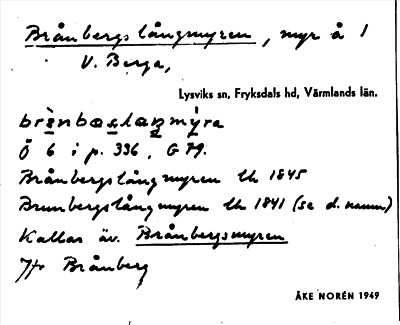 Brånbergslångmyren, myr å 1
V. Berga,
Lysviks sn, Fryksdals hd, Värmlands län.
Ö 6 i p. 336, G 79.
Brånbergslång myren Uh 1845
Brunbergslångmyren Uh 1841 (se d. namn)
Kallas äv. Brånbergsmyren
Jfr Brånberg
ÅKE NORÉN 1949